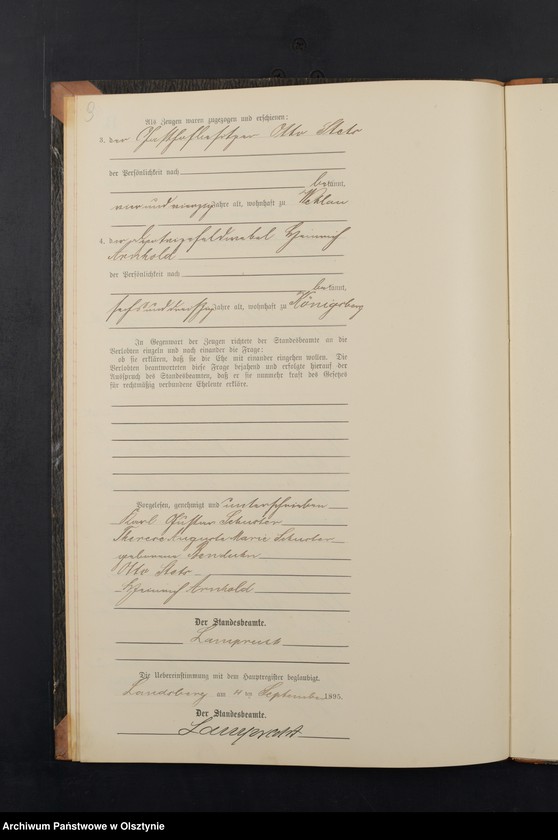 9
Als Zeugen waren zugezogen und erschienen:
3. der Gasthofbesitzer Otto
der Persönlichkeit nach
bekannt,
vierundvierzig Jahre alt, wohnhaft zu Wehlau
4. der Heinrich
Arnhold
der Persönlichkeit nach
bekannt,
sechsunddreißig Jahre alt, wohnhaft zu Königsberg
In Gegenwart der Zeugen richtete der Standesbeamte an die
Verlobten einzeln und nach einander die Frage:
ob sie erklären, daß sie die Ehe mit einander eingehen wollen. Die
Verlobten beantworteten diese Frage bejahend und erfolgte hierauf der
Ausspruch des Standesbeamten, daß er sie nunmehr kraft des Gesetzes
für rechtmäßig verbundene Eheleute erkläre.
Vorgelesen, genehmigt und unterschrieben
Karl Gustav Schuster
Therese Auguste Marie Schuster
geborene
Otto
Heinrich Arnhold
Der Standesbeamte.
Lamprecht
Die Uebereinstimmung mit dem Hauptregister beglaubigt.
Landsberg am September 1895.
Der Standesbeamte.
Lamprecht
Archiwum Państwowe w Olsztynie